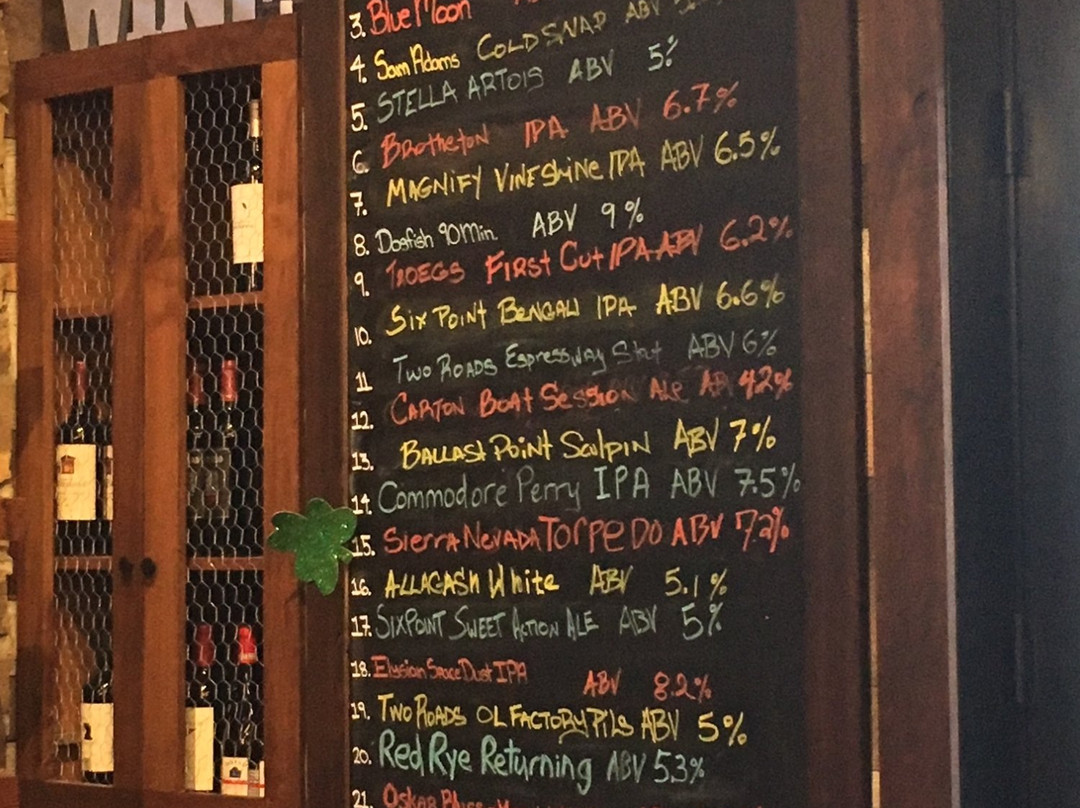 WINE
3. Blue Moon
4. Sam Adams COLD SNAP ABV
5. STELLA ARTOIS ABV 5%
6. Brotherton IPA ABV 6.7%
7. MAGNIFY VINE SHINE IPA ABV 6.5%
8. Dogfish 90 Min. ABV 9%
9. TROEGS FIRST CUT IPA ABV 6.2%
10. SIX POINT BENGALI IPA ABV 6.6%
11 TWO ROADS Espressway Stout ABV 6%
12. CARTON BOAT SESSION ALE AB 4.2%
13. BALLAST POINT Sculpin ABV 7%
14. Commodore Perry IPA ABV 7.5%
15. SIERRA NEVADA TORPEDO ABV 7.2%
16. ALLAGASH White ABV 5.1%
17. SIXPOINT SWEET ACTION ALE ABV 5%
18. Elysian Space Dust IPA ABV 8.2%
19. TWO ROADS OL FACTORY PILS ABV 5%
20. Red Rye Returning ABV 5.3%
21. OSKAR